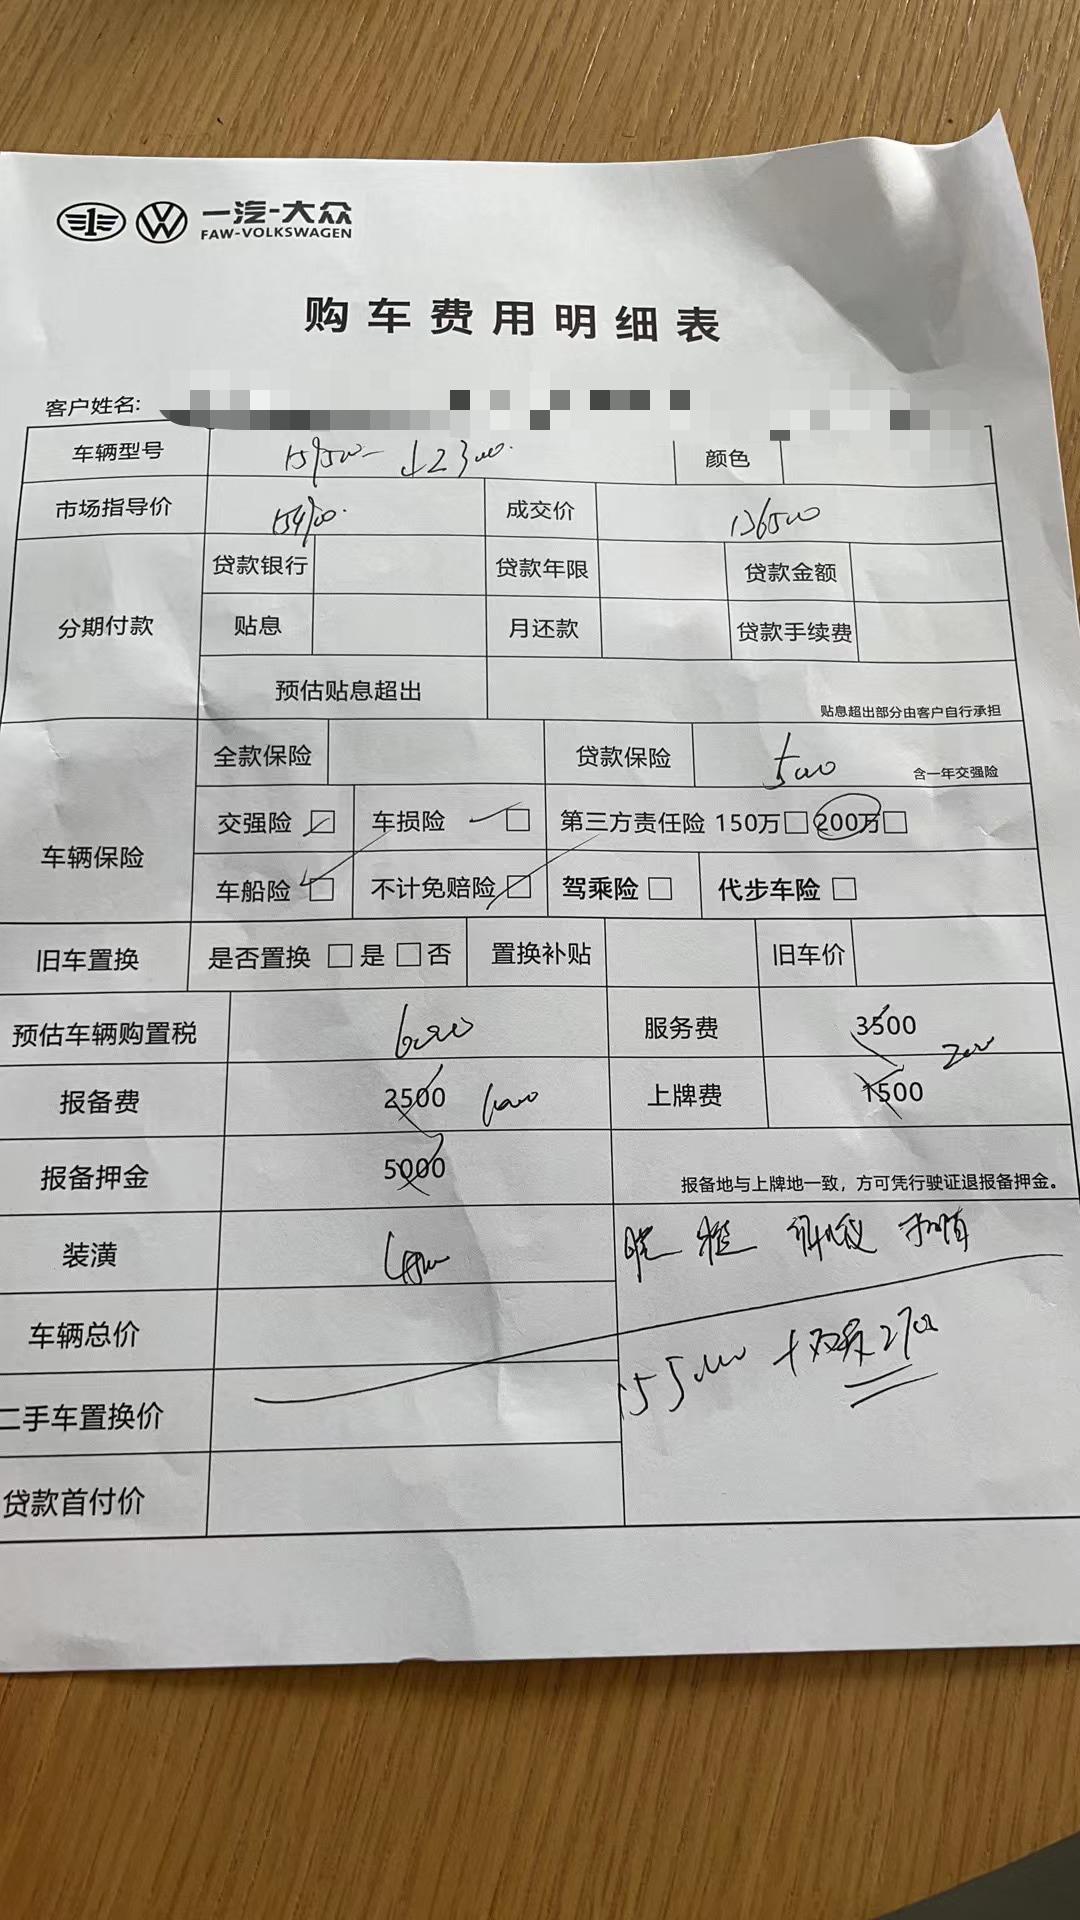 一汽-大众
FAW-VOLKSWAGEN
购车费用明细表
客户姓名:
车辆型号 159500- ↓23000. 颜色
市场指导价 成交价 136500
分期付款 贷款银行 贷款年限 贷款金额
贴息 月还款 贷款手续费
预估贴息超出 贴息超出部分由客户自行承担
车辆保险 全款保险 贷款保险 5000 含一年交强险
交强险 ☑ 车损险 □ 第三方责任险 150万□ 200万□
车船险 □ 不计免赔险 □ 驾乘险 □ 代步车险 □
旧车置换 是否置换 □是 □否 置换补贴 旧车价
预估车辆购置税 6000 服务费 3500
2000
报备费 2500 1000 上牌费 1500
报备押金 5000 报备地与上牌地一致，方可凭行驶证退报备押金。
装潢
车辆总价
155000 +双层2700
二手车置换价
贷款首付价